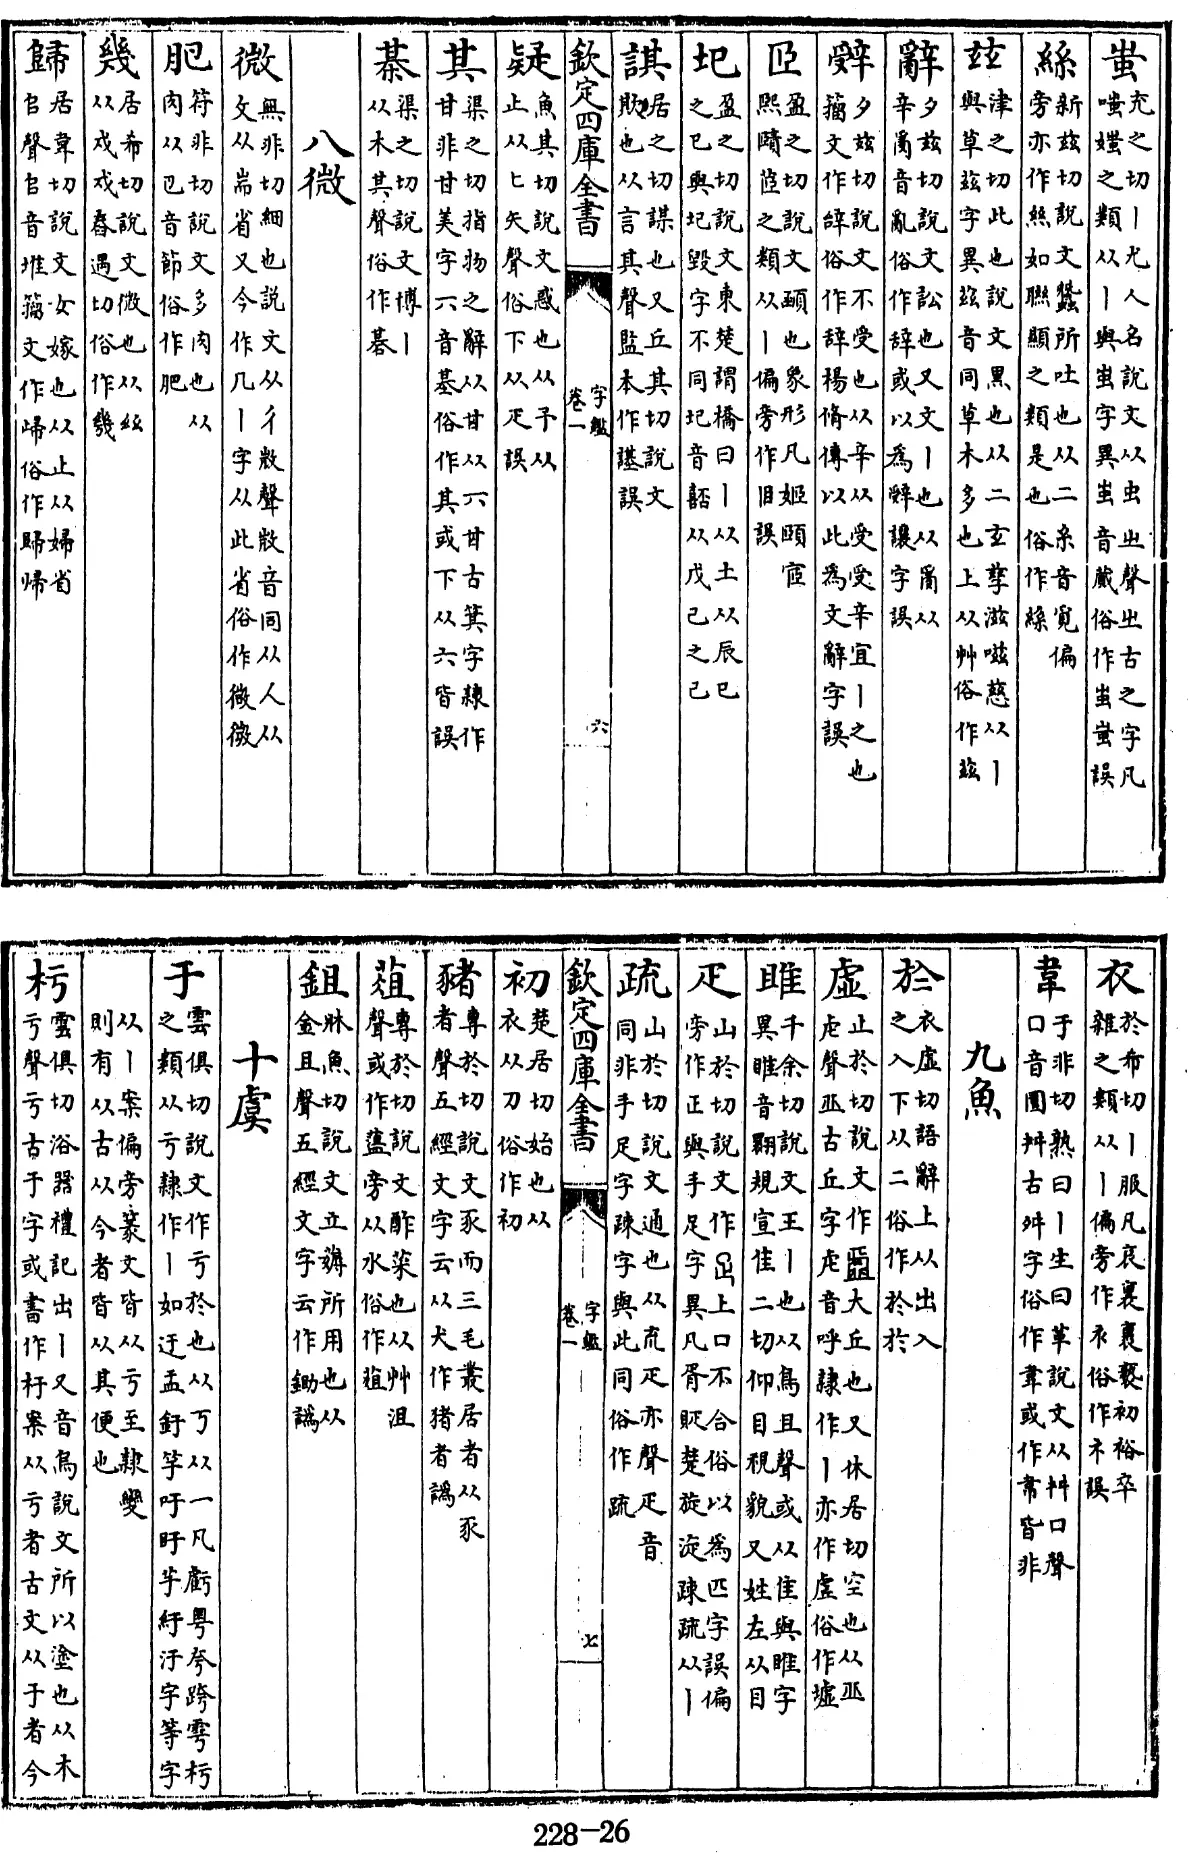 蚩充之切丨尤人名說文从虫㞢聲㞢古之字凡
嗤媸之類从丨與蚩字異蚩音蕆俗作蚩蚩誤
絲新兹切說文蠶所吐也从二糸音覓偏
旁亦作絲如聯顯之類是也俗作絲
玆津之切此也說文黑也从二玄孳滋嗞慈从丨
與草茲字異茲音同草木多也上从艸俗作兹
辭夕兹切說文訟也又文丨也从𤔔从
辛𤔔音亂俗作辞或以為辤讓字誤
辤夕兹切說文不受也从辛从受受辛宜丨之也
籀文作辝俗作辞楊脩傳以此為文辭字誤
𦣞盈之切說文頤也象形凡姬頤宧
熙賾茝之類从丨偏旁作𦣝誤
圯盈之切說文東楚謂橋曰丨从土从辰巳
之巳與圮毀字不同圮音嚭从戊己之己
諆居之切謀也又丘其切說文
欺也从言其聲監本作諶誤
欽定四庫全書
字鑑
卷一
六
疑魚其切說文惑也从子从
止从匕矢聲俗下从疋誤
其渠之切指物之辭从甘从六甘古箕字隸作
甘非甘美字六音基俗作其或下从六皆誤
棊渠之切說文博丨
从木其聲俗作碁
八微
微無非切細也說文从彳𢼸聲𢼸音同从人从
攵从耑省又今作几丨字从此省俗作㣲微
肥符非切說文多肉也从
肉从巴音節俗作肥
幾居希切說文微也从𢆶
从戍戍舂遇切俗作㡬
歸居韋切說文女嫁也从止从婦省
𠂤聲𠂤音堆籀文作㱕俗作歸帰
衣於希切丨服凡哀裏裹褻初裕卒
雜之類从丨偏旁作衤俗作礻誤
韋于非切熟曰丨生曰革說文从舛口聲
口音圍舛古舛字俗作韋或作韋皆非
九魚
於衣虛切語辭上从出入
之入下从二俗作於扵
虛止於切說文作𠀌大丘也又休居切空也从丠
虍聲丠古丘字虍音呼隸作丨亦作虗俗作墟
雎千余切說文王丨也从鳥且聲或从隹與睢字
異睢音翾規宣隹二切仰目視貌又姓左从目
疋山於切說文作𤴓上口不合俗以為匹字誤偏
旁作正與手足字異凡胥㫁楚旋㳬疎疏从丨
疏山於切說文通也从㐬疋亦聲疋音
同非手足字疎字與此同俗作䟽
欽定四庫全書
字鑑
卷一
七
初楚居切始也从
衣从刀俗作初
豬專於切說文豕而三毛叢居者从豕
者聲五經文字云从犬作猪者譌
葅專於切說文酢菜也从艸沮
聲或作薀旁从水俗作葅
鉏牀魚切說文立薅所用也从
金且聲五經文字云作鋤譌
十虞
于雲俱切說文作亏於也从丂从一凡虧粤夸跨雩杇
之類从亏隸作丨如迂盂釪竽吁盱芋紆汙字等字
从丨案偏旁篆文皆从亏至隸變
則有从古从今者皆从其便也
杇雲俱切浴器禮記出丨又音烏說文所以塗也从木
亏聲亏古于字或書作杅案从亏者古文从于者今
228-26